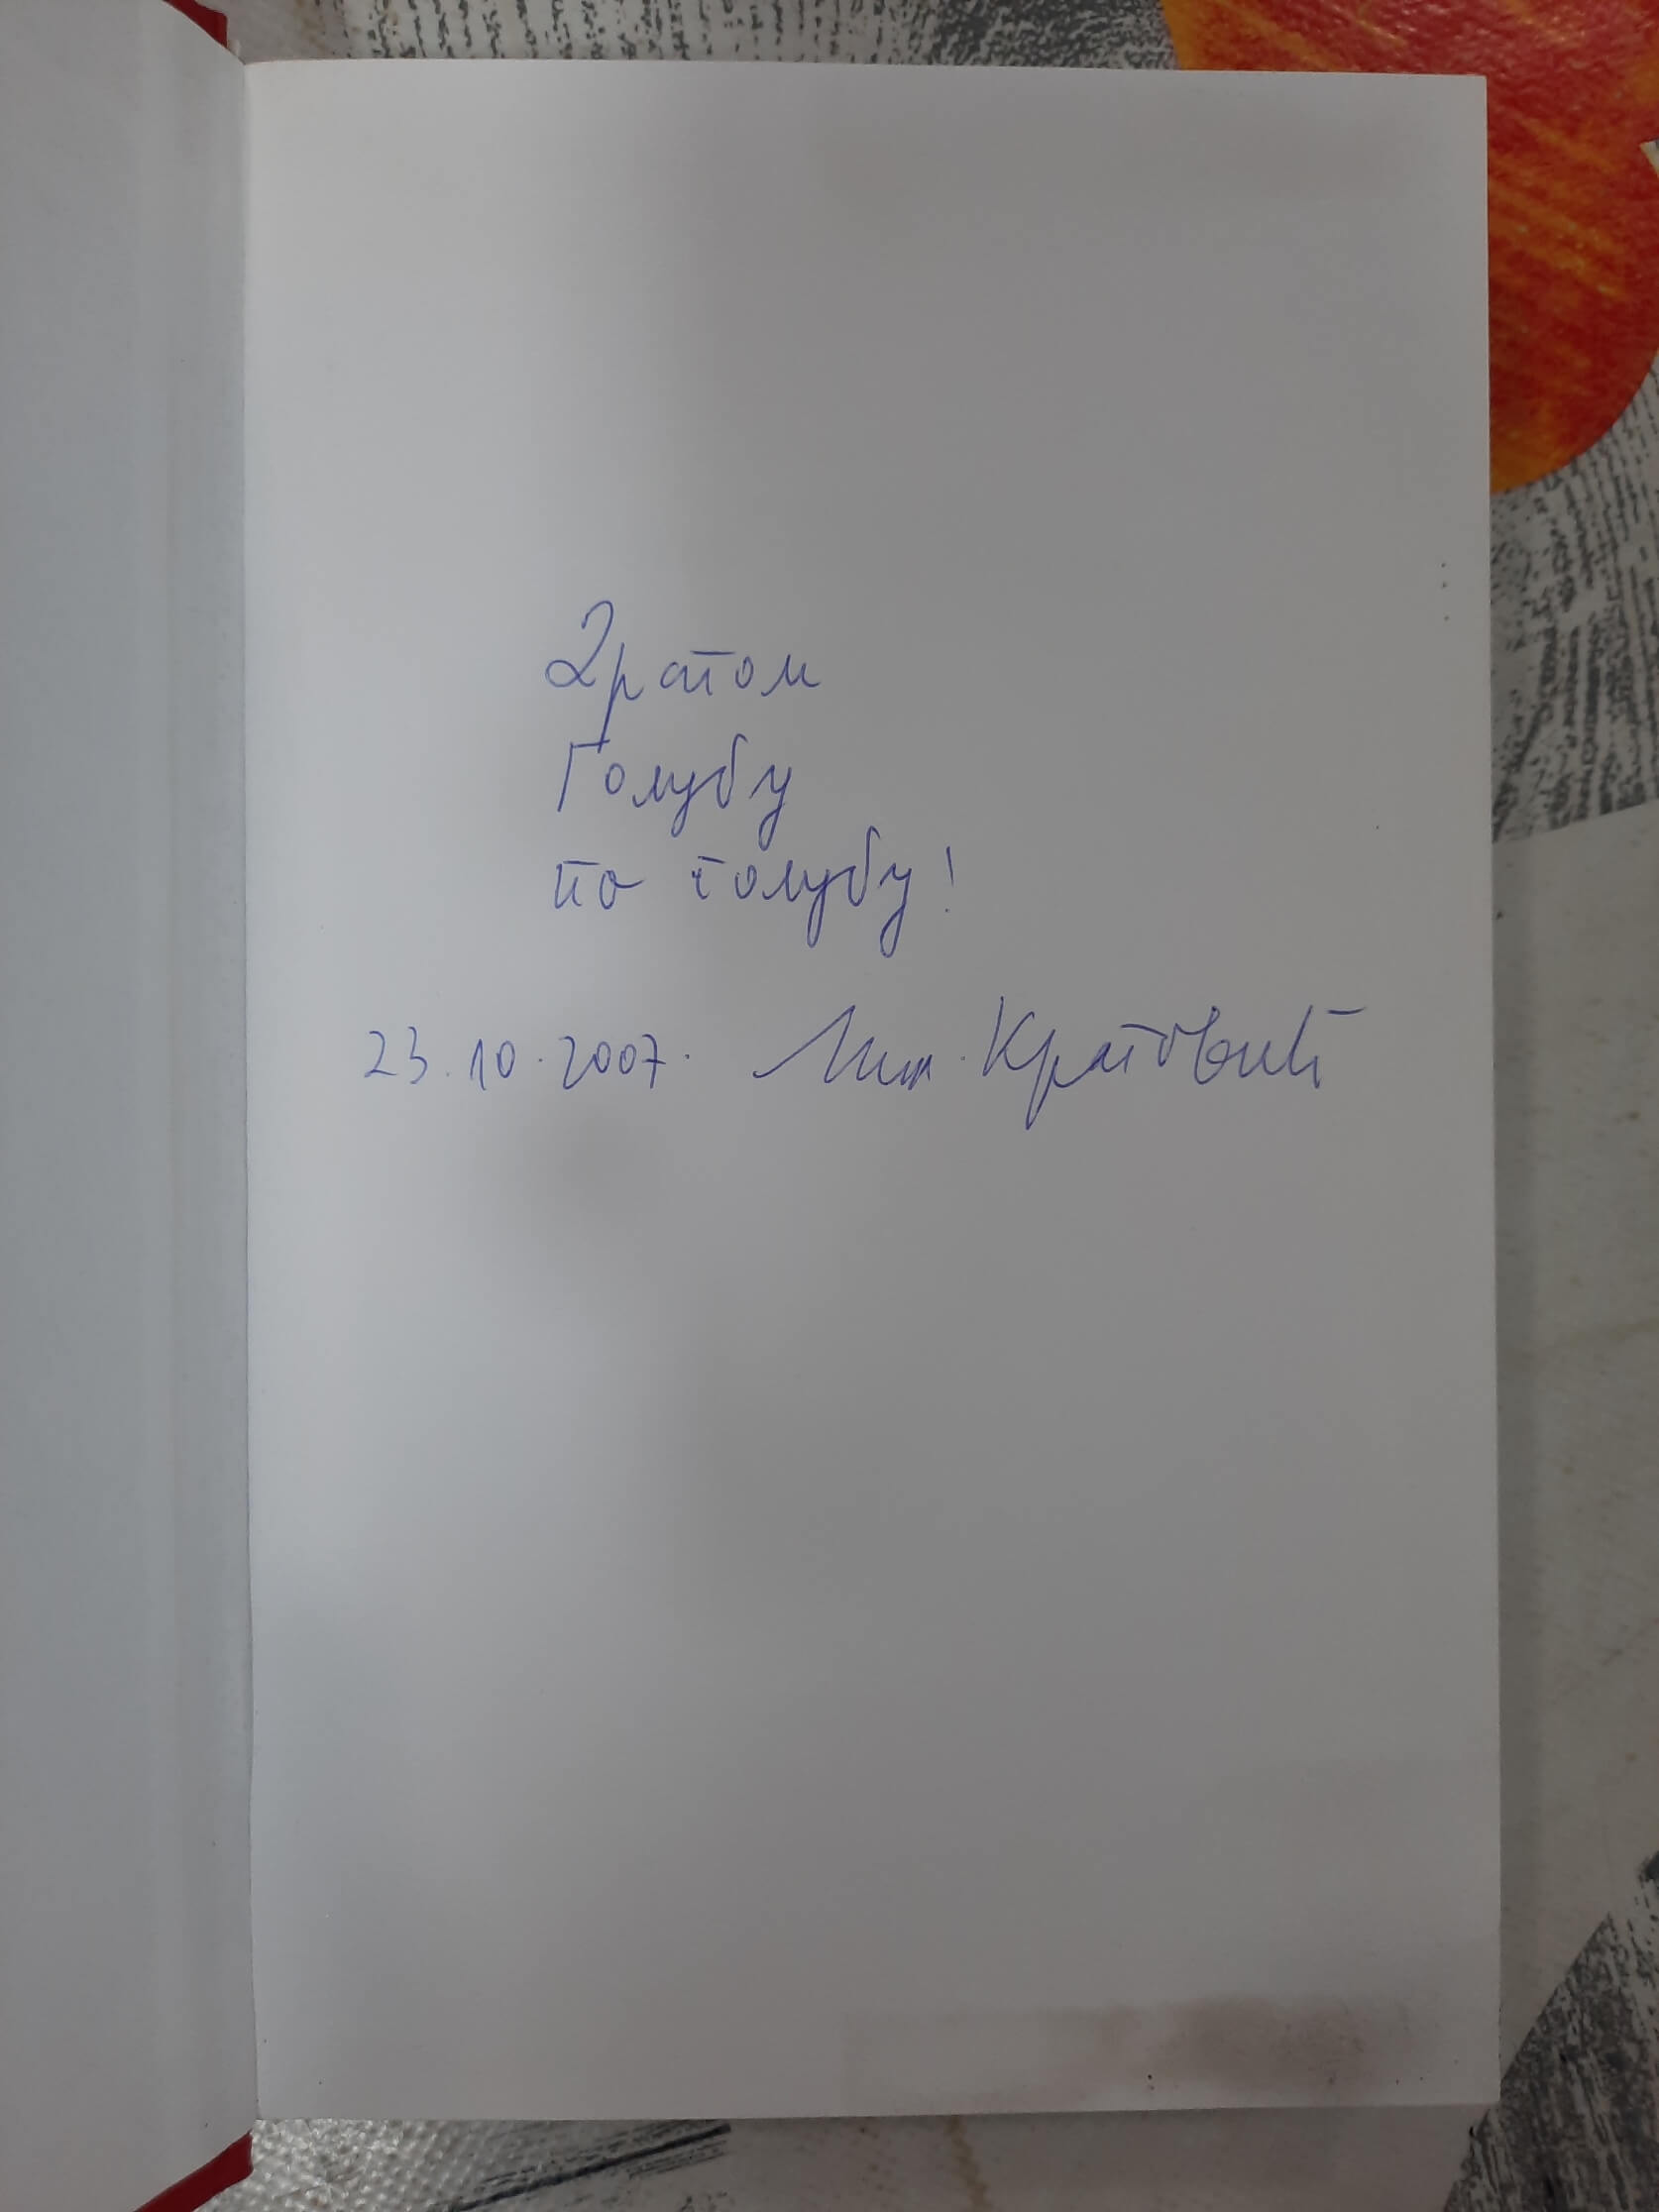 Драгом
Голубу
по голубу!
23.10.2007. Мил. Кратовић